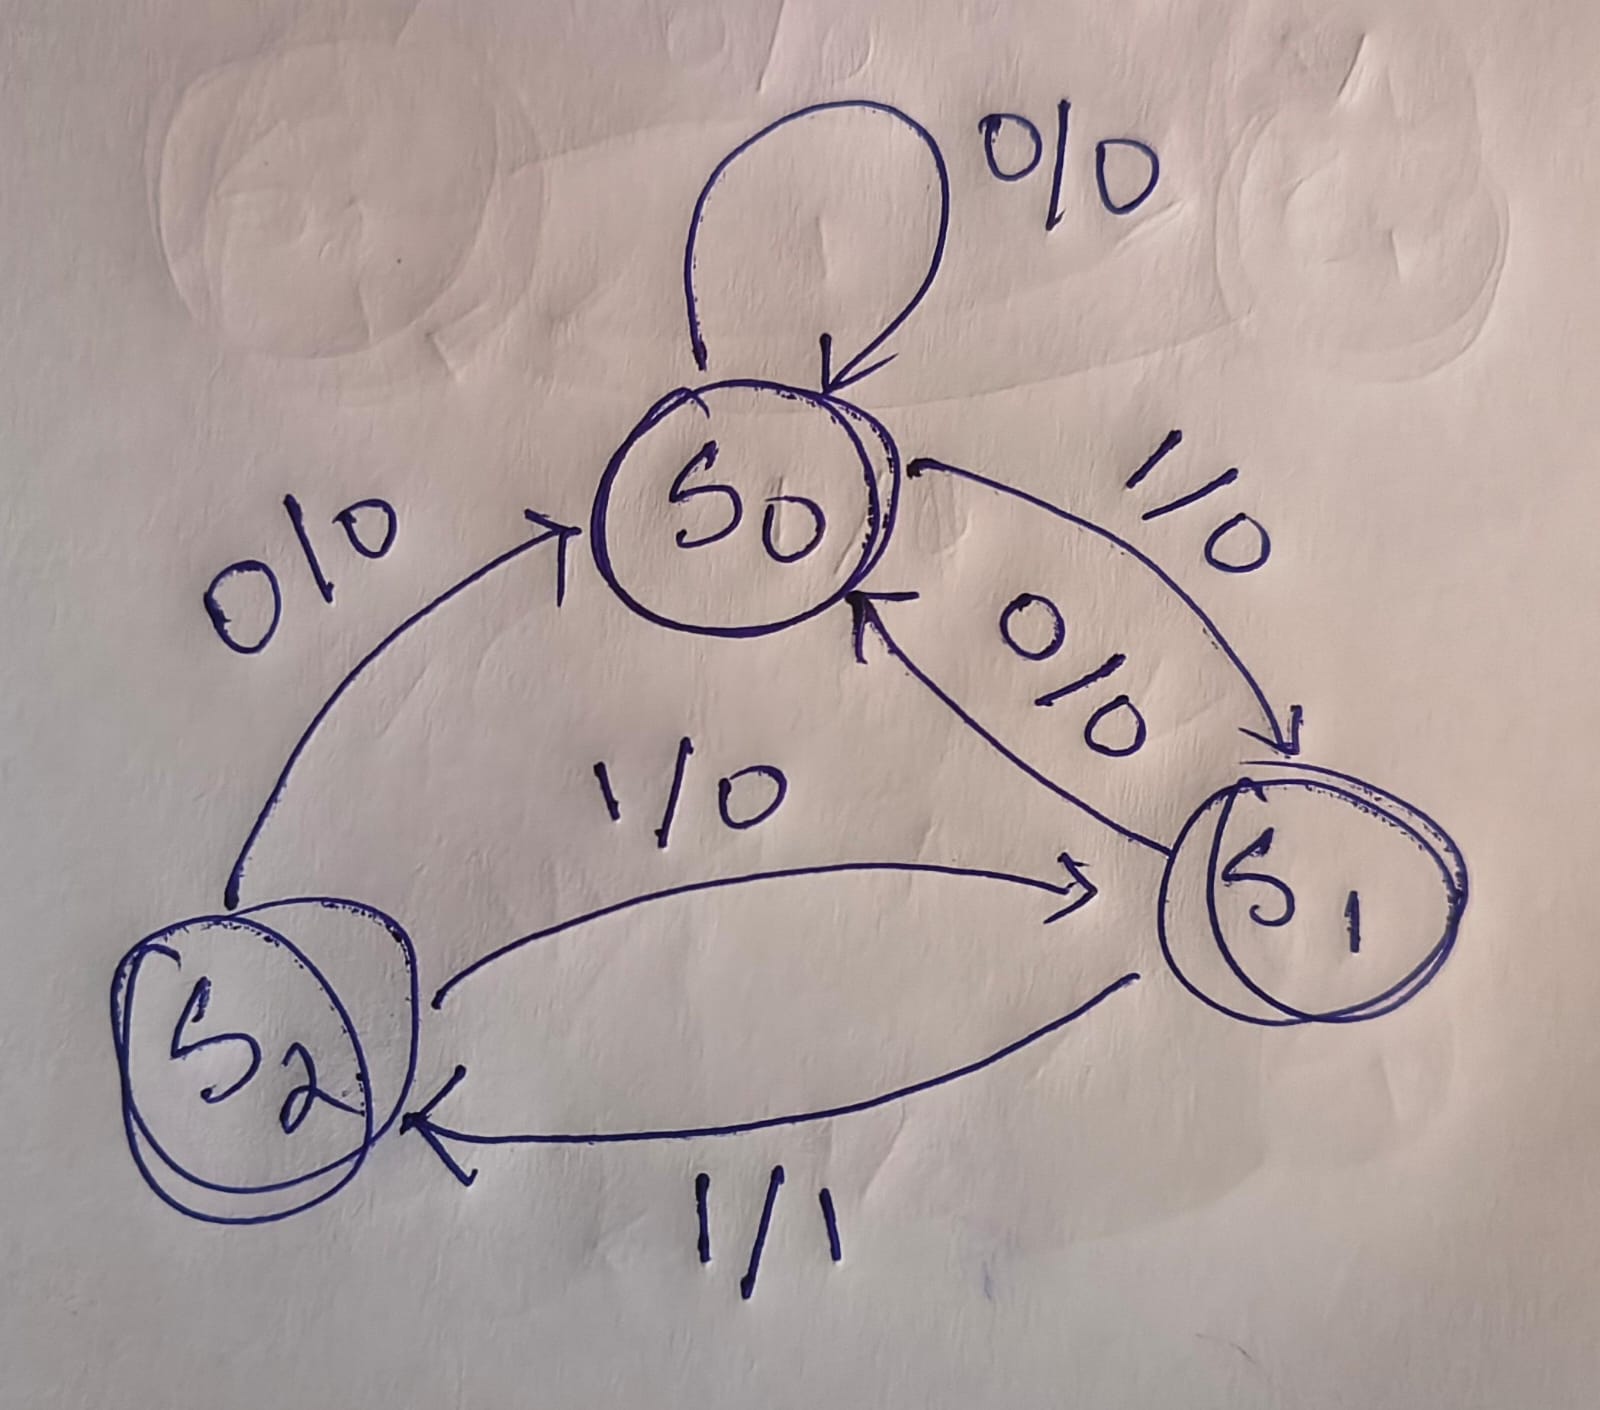 0/0
S0
1/0
0/0
0/0
1/0
S1
S2
1/1